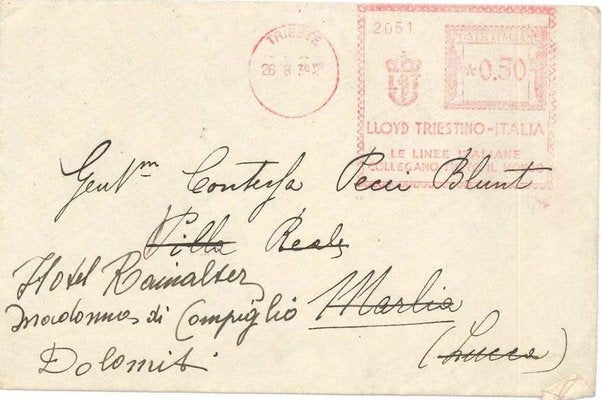 TRIESTE
26 8 39
2051
POSTE ITALIANE
*0.50
LLOYD TRIESTINO-ITALIA
LE LINEE ITALIANE
COLLEGANO IL MONDO
Gent.ma Contessa Pecci Blunt
Villa Reale
Hotel Rainalter
Madonna di Campiglio Marlia
Dolomiti (Lucca)